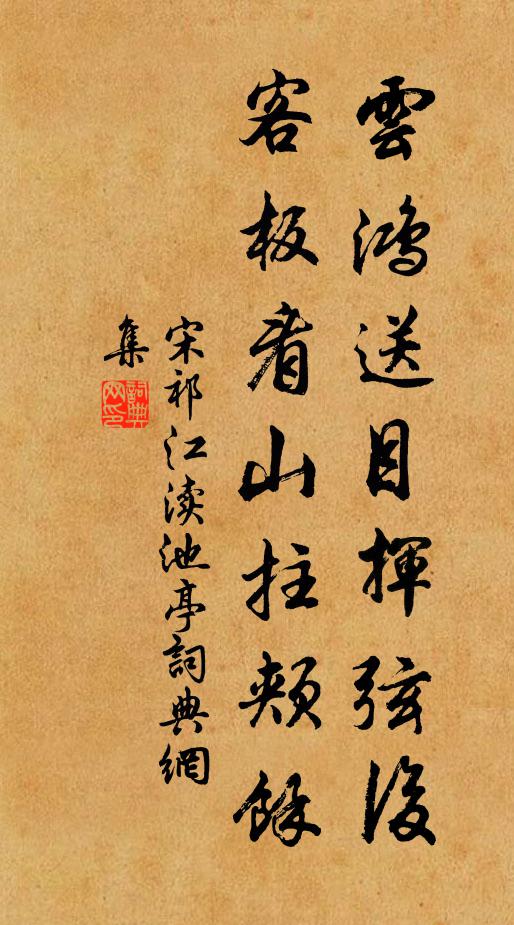 雲鴻送目揮弦後
客板看山拄頰餘
宋祁江瀆池亭詞典網
集
詞典網印